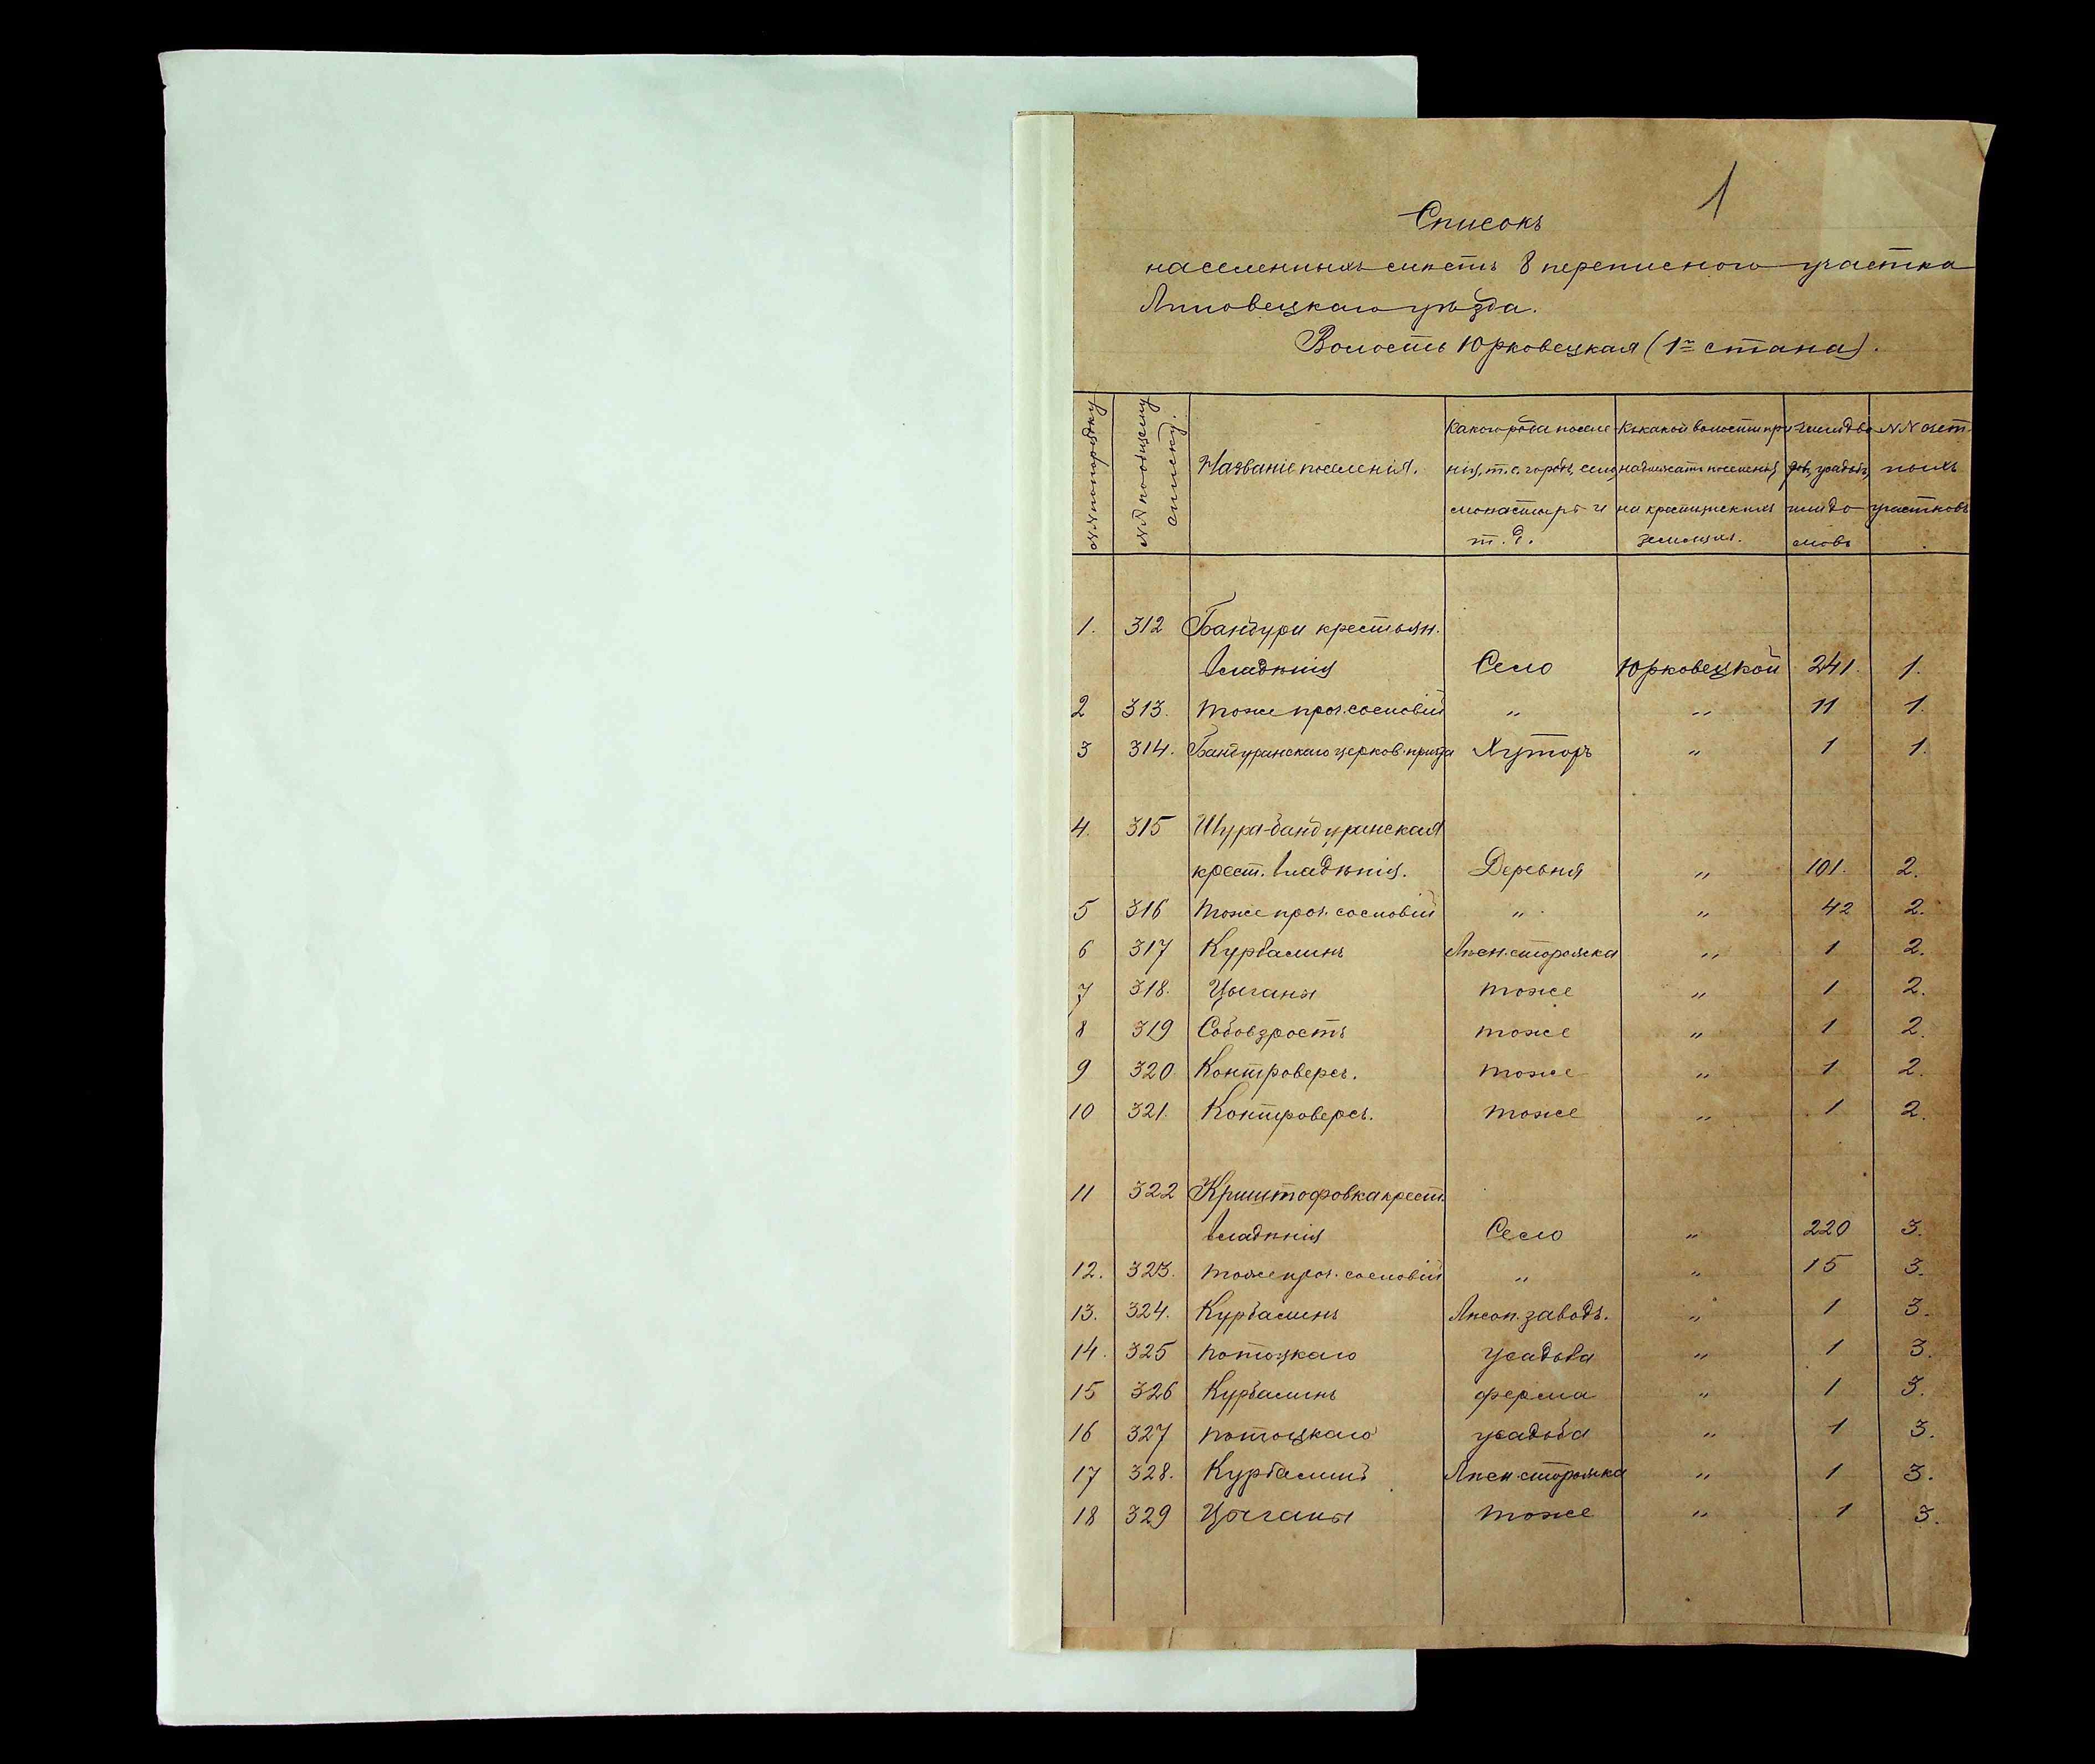 1
Списокъ
населенныхъ мѣстъ 8 переписного участка
Липовецкаго уѣзда.
Волость Юрковецкая (1го стана).
№№ по порядку
№№ по общему списку.
Названіе поселенія.
Какого рода поселе-
нія, т. е. городъ, село,
монастырь и
т. д.
Къ какой волости при-
надлежатъ поселенія
на крестьянскихъ
земляхъ.
Число дво-
ровъ, усадьбъ,
или до-
мовъ
№№ счет-
ныхъ
участковъ.
1. 312 Бандури крестьян.
владѣнія Село Юрковецкой 241. 1.
2 313. тоже проч. сословій " " 11 1.
3 314. Бандуранскаго церков. Хуторъ " 1 1.
4. 315 Шура-бандуринская
крест. владѣнія. Деревня " 101. 2.
5 316 тоже проч. сословій " " 42 2.
6 317 Курбалинъ Лѣсн. сторожка " 1 2.
7 318. Цыганы тоже " 1 2.
8 319 тоже " 1 2.
9 320. Контроверсъ. тоже " 1 2.
10 321. Контроверсъ. тоже " 1 2.
11 322 Криштофовка крест.
владѣнія Село " 220 3.
12. 323. тоже проч. сословій " " 15 3.
13. 324. Курбалинъ Лѣсоп. заводъ. " 1 3.
14. 325 Потоцкаго усадьба " 1 3.
15 326 Курбалинъ ферма " 1 3.
16 327 Потоцкаго усадьба " 1 3.
17 328. Курбалинъ Лѣсн. сторожка " 1 3.
18 329 Цыганы тоже " 1 3.